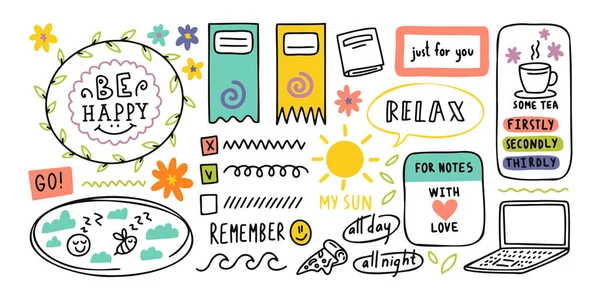 BE
HAPPY
just for you
RELAX
SOME TEA
FIRSTLY
SECONDLY
THIRDLY
X
V
GO!
MY SUN
FOR NOTES
WITH
LOVE
REMEMBER
all day
all night
z z z
z z z